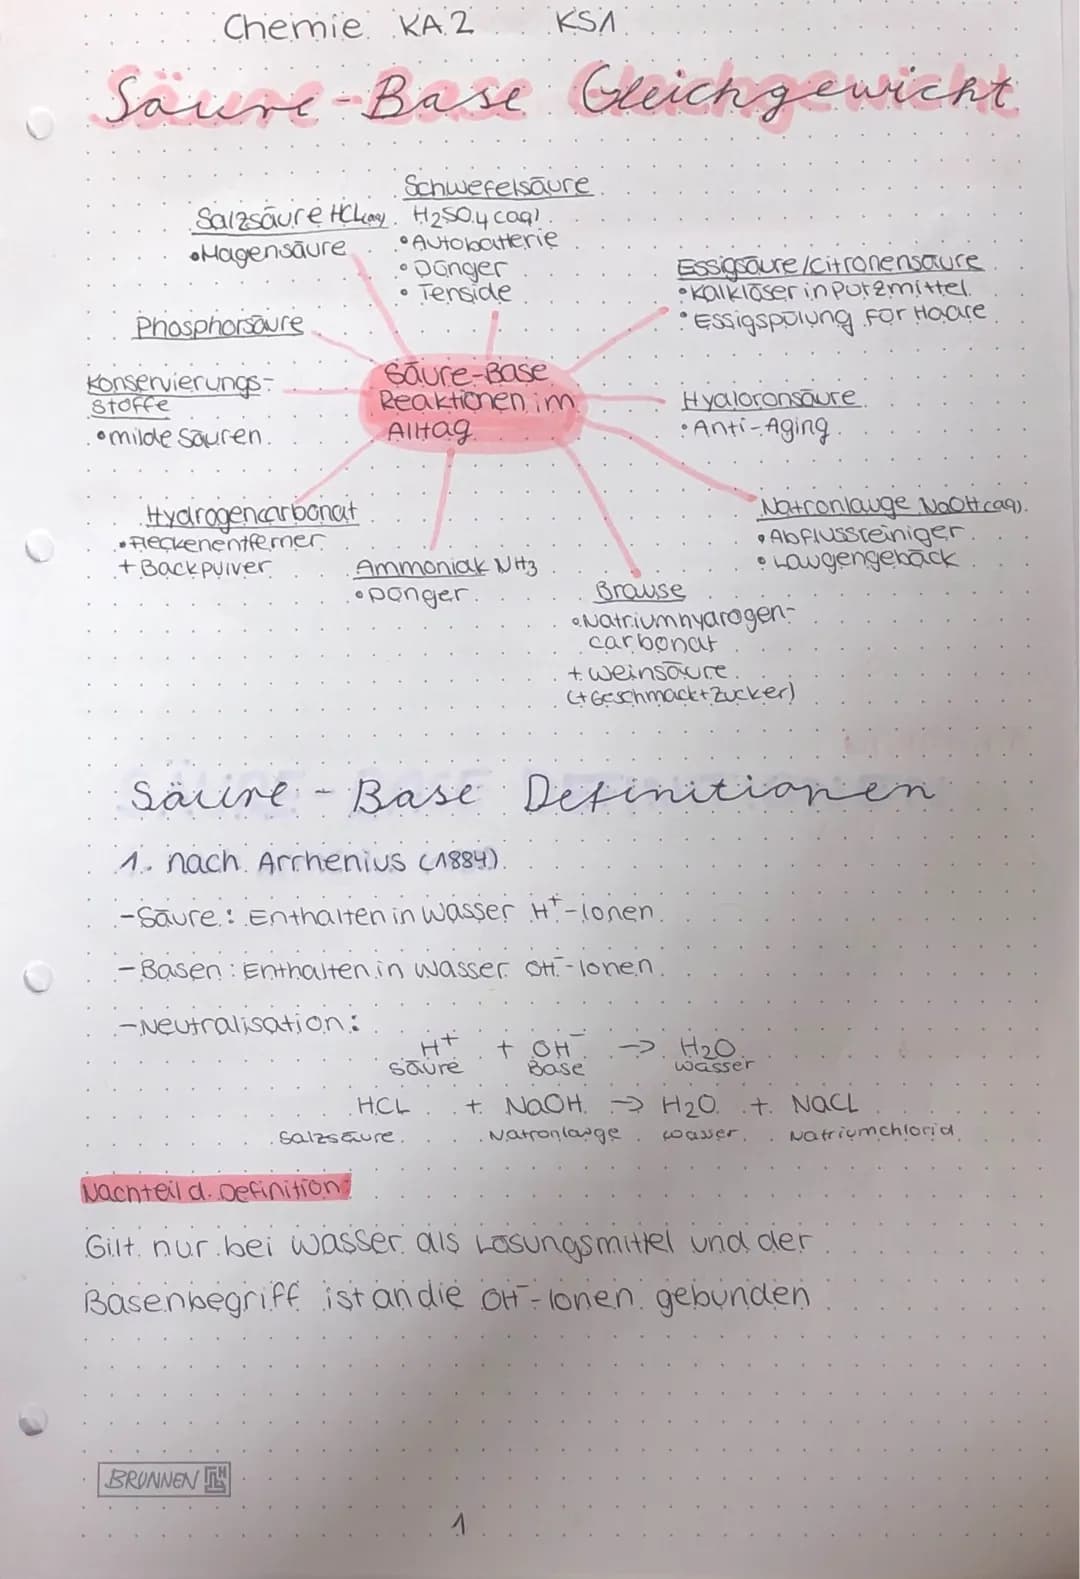 Chemie KA 2 KS1
Säure-Base Gleichgewicht
Schwefelsäure
H2SO4 (aq)
• Autobatterie
• Dünger
• Tenside
Salzsäure HCl(aq)
• Magensäure
Essigsäure/Citronensäure
• Kalklöser in Putzmittel
• Essigspülung für Haare
Phosphorsäure
Konservierungs-
stoffe
• milde Säuren
Säure-Base
Reaktionen im
Alltag
Hyaloronsäure
• Anti-Aging
Hydrogencarbonat
• Fleckenentferner
+ Backpulver
Ammoniak NH3
• Dünger
Natronlauge NaOH(aq)
• Abflussreiniger
• Laugengebäck
Brause
• Natriumhydrogen-
carbonat
+ Weinsäure
(+Geschmack+Zucker)
Säure - Base Definitionen
1. nach Arrhenius (1884)
- Säure: Enthalten in Wasser H⁺-Ionen
- Basen: Enthalten in Wasser OH⁻-Ionen
- Neutralisation:
H⁺ + OH⁻ → H2O
Säure Base Wasser
HCL + NaOH → H2O + NaCL
Salzsäure Natronlauge Wasser Natriumchlorid
Nachteil d. Definition:
Gilt nur bei Wasser als Lösungsmittel und der
Basenbegriff ist an die OH⁻-Ionen gebunden
BRUNNEN
1